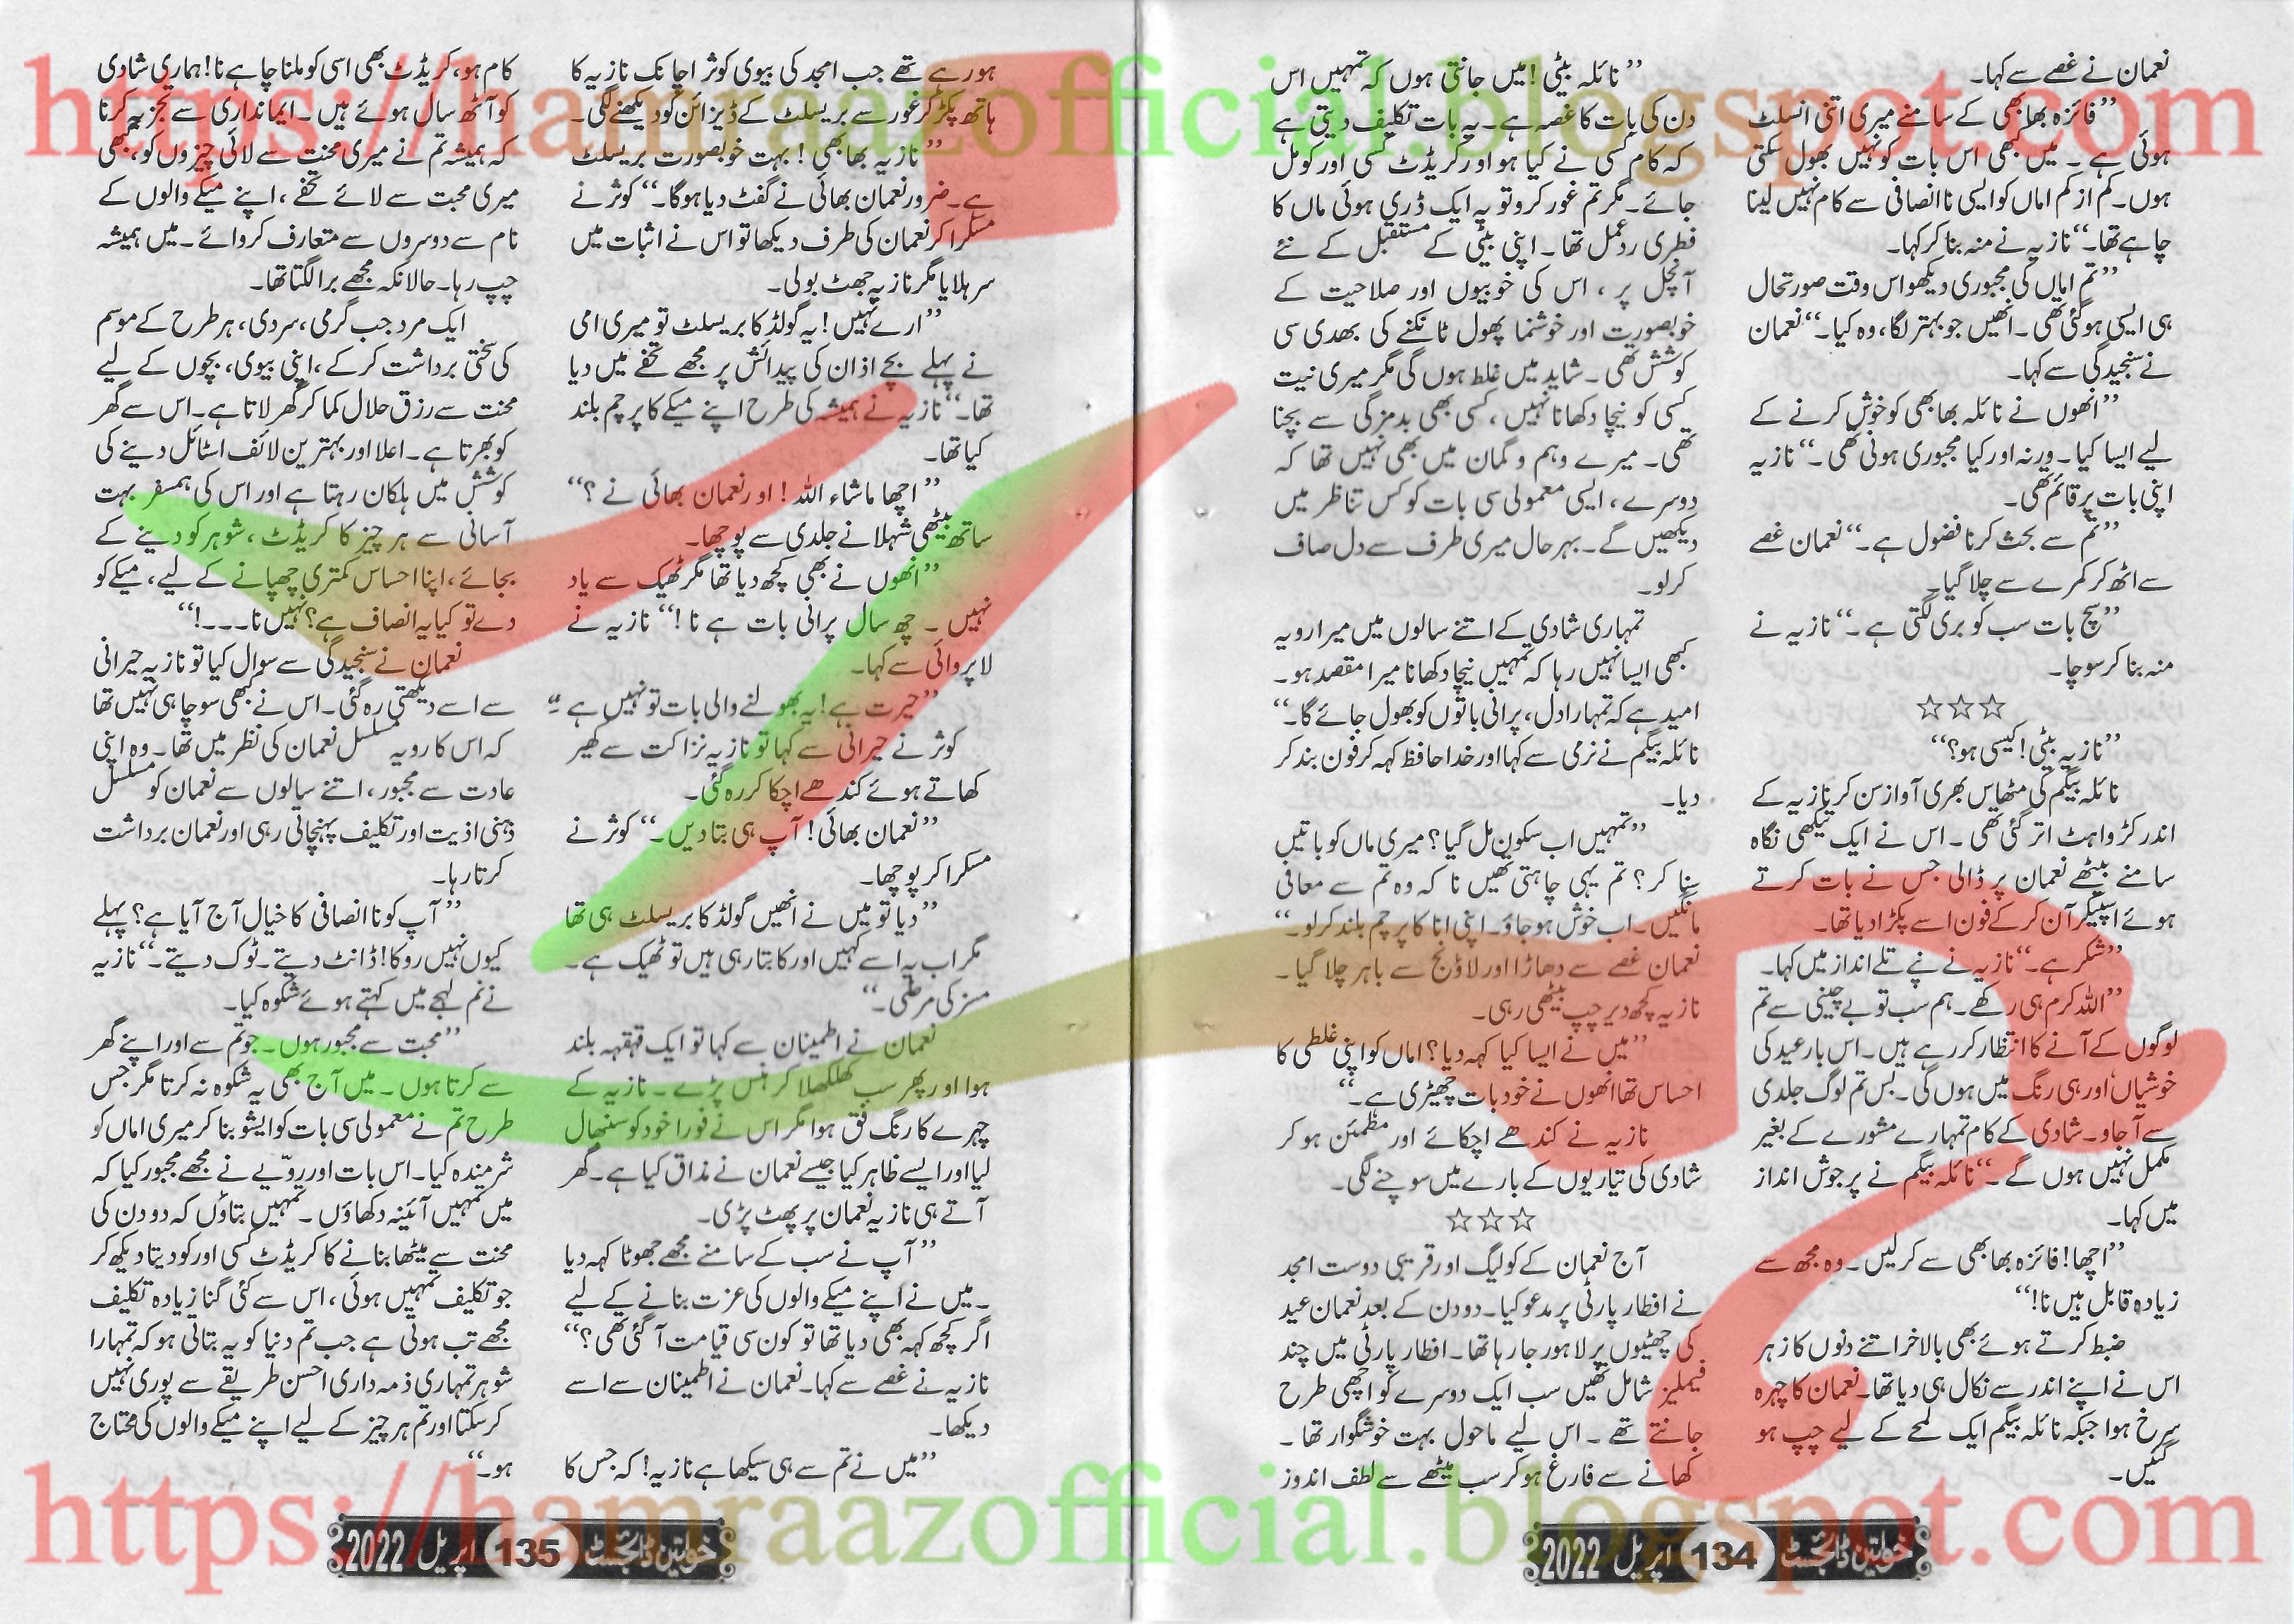 نعمان نے غصے سے کہا۔
”فائزہ بھابھی کے سامنے میری اتنی انسلٹ
ہوئی ہے ۔ میں کبھی اس بات کو نہیں بھول سکتی
ہوں۔ کم از کم اماں کو ایسی نا انصافی سے کام نہیں لینا
چاہیے تھا۔“ نازیہ نے منہ بنا کر کہا۔
”تم اماں کی مجبوری دیکھو اس وقت صورتحال
ہی ایسی ہوگئی تھی ۔ انھیں جو بہتر لگا، وہ کیا۔“ نعمان
نے سنجیدگی سے کہا۔
”انھوں نے نائلہ بھابھی کو خوش کرنے کے
لیے ایسا کیا۔ ورنہ اور کیا مجبوری ہونی تھی ۔“ نازیہ
اپنی بات پر قائم تھی۔
”تم سے بحث کرنا فضول ہے ۔“ نعمان غصے
سے اٹھ کر کمرے سے چلا گیا۔
”سچ بات سب کو بری لگتی ہے ۔“ نازیہ نے
منہ بنا کر سوچا۔
☆☆☆
”نازیہ بیٹی! کیسی ہو؟“
نائلہ بیگم کی مٹھاس بھری آواز سن کر نازیہ کے
اندر کڑواہٹ اتر گئی تھی ۔ اس نے ایک تیکھی نگاہ
سامنے بیٹھے نعمان پر ڈالی جس نے بات کرتے
ہوئے اسپیکر آن کر کے فون اسے پکڑا دیا تھا۔
”شکر ہے۔“ نازیہ نے نپے تلے انداز میں کہا۔
”اللہ کرم ہی رکھے۔ ہم سب تو بے چینی سے تم
لوگوں کے آنے کا انتظار کر رہے ہیں۔ اس بار عید کی
خوشیاں اور ہی رنگ میں ہوں گی۔ بس تم لوگ جلدی
سے آجاو۔ شادی کے کام تمہارے مشورے کے بغیر
مکمل نہیں ہوں گے ۔“ نائلہ بیگم نے پر جوش انداز
میں کہا۔
”اچھا! فائزہ بھابھی سے کر لیں۔ وہ مجھ سے
زیادہ قابل ہیں نا!“
ضبط کرتے ہوئے بھی بالاخر اتنے دنوں کا زہر
اس نے اپنے اندر سے نکال ہی دیا تھا۔ نعمان کا چہرہ
سرخ ہوا جبکہ نائلہ بیگم ایک لمحے کے لیے چپ ہو
گئیں۔
”نائلہ بیٹی! میں جانتی ہوں کہ تمہیں اس
دن کی بات کا غصہ ہے۔ یہ بات تکلیف دیتی ہے
کہ کام کسی نے کیا ہو اور کریڈٹ کسی اور کو مل
جائے۔ مگر تم غور کرو تو یہ ایک ڈری ہوئی ماں کا
فطری ردعمل تھا۔ اپنی بیٹی کے مستقبل کے نئے
آنچل پر ، اس کی خوبیوں اور صلاحیت کے
خوبصورت اور خوشنما پھول ٹانکنے کی بھدی سی
کوشش تھی ۔ شاید میں غلط ہوں گی مگر میری نیت
کسی کو نیچا دکھانا نہیں، کسی بھی بدمزگی سے بچنا
تھی۔ میرے وہم و گمان میں بھی نہیں تھا کہ
دوسرے، ایسی معمولی سی بات کو کس تناظر میں
دیکھیں گے۔ بہرحال میری طرف سے دل صاف
کرلو۔
تمہاری شادی کے اتنے سالوں میں میرا رویہ
کبھی ایسا نہیں رہا کہ تمہیں نیچا دکھانا میرا مقصد ہو۔
امید ہے کہ تمہارا دل، پرانی باتوں کو بھول جائے گا۔“
نائلہ بیگم نے نرمی سے کہا اور خدا حافظ کہہ کر فون بند کر
دیا۔
”تمہیں اب سکون مل گیا؟ میری ماں کو باتیں
سنا کر؟ تم یہی چاہتی تھیں نا کہ وہ تم سے معافی
مانگیں۔ اب خوش ہو جاؤ۔ اپنی انا کا پرچم بلند کرلو۔“
نعمان غصے سے دھاڑا اور لاؤنج سے باہر چلا گیا۔
نازیہ کچھ دیر چپ بیٹھی رہی۔
”میں نے ایسا کیا کہہ دیا؟ اماں کو اپنی غلطی کا
احساس تھا انھوں نے خود بات چھیڑی ہے۔“
نازیہ نے کندھے اچکائے اور مطمئن ہو کر
شادی کی تیاریوں کے بارے میں سوچنے لگی۔
☆☆☆
آج نعمان کے کولیگ اور قریبی دوست امجد
نے افطار پارٹی پر مدعو کیا۔ دو دن کے بعد نعمان عید
کی چھٹیوں پر لاہور جا رہا تھا۔ افطار پارٹی میں چند
فیملیز شامل تھیں سب ایک دوسرے کو اچھی طرح
جانتے تھے ۔ اس لیے ماحول بہت خوشگوار تھا ۔
کھانے سے فارغ ہو کر سب میٹھے سے لطف اندوز
خواتین ڈائجسٹ 134 اپریل 2022
ہو رہے تھے جب امجد کی بیوی کوثر اچانک نازیہ کا
ہاتھ پکڑ کر غور سے بریسلٹ کے ڈیزائن کو دیکھنے لگی۔
”نازیہ بھابھی! بہت خوبصورت بریسلٹ
ہے۔ ضرور نعمان بھائی نے گفٹ دیا ہوگا۔“ کوثر نے
مسکرا کر نعمان کی طرف دیکھا تو اس نے اثبات میں
سر ہلایا مگر نازیہ جھٹ بولی۔
”ارے نہیں! یہ گولڈ کا بریسلٹ تو میری امی
نے پہلے بچے اذان کی پیدائش پر مجھے تحفے میں دیا
تھا۔“ نازیہ نے ہمیشہ کی طرح اپنے میکے کا پرچم بلند
کیا تھا۔
”اچھا ماشاء اللہ! اور نعمان بھائی نے ؟“
ساتھ بیٹھی شہلا نے جلدی سے پوچھا۔
”انھوں نے بھی کچھ دیا تھا مگر ٹھیک سے یاد
نہیں ۔ چھ سال پرانی بات ہے نا!“ نازیہ نے
لاپروائی سے کہا۔
”حیرت ہے! یہ بھولنے والی بات تو نہیں ہے ۔“
کوثر نے حیرانی سے کہا تو نازیہ نزاکت سے کھیر
کھاتے ہوئے کندھے اچکا کر رہ گئی۔
”نعمان بھائی! آپ ہی بتا دیں۔“ کوثر نے
مسکرا کر پوچھا۔
”دیا تو میں نے انھیں گولڈ کا بریسلٹ ہی تھا
مگر اب یہ اسے کہیں اور کا بتا رہی ہیں تو ٹھیک ہے۔
مسز کی مرضی۔“
نعمان نے اطمینان سے کہا تو ایک قہقہہ بلند
ہوا اور پھر سب کھلکھلا کر ہنس پڑے۔ نازیہ کے
چہرے کا رنگ فق ہوا مگر اس نے فورا خود کو سنبھال
لیا اور ایسے ظاہر کیا جیسے نعمان نے مذاق کیا ہے۔ گھر
آتے ہی نازیہ نعمان پر پھٹ پڑی۔
”آپ نے سب کے سامنے مجھے جھوٹا کہہ دیا
۔ میں نے اپنے میکے والوں کی عزت بنانے کے لیے
اگر کچھ کہہ بھی دیا تھا تو کون سی قیامت آگئی تھی؟“
نازیہ نے غصے سے کہا۔ نعمان نے اطمینان سے اسے
دیکھا۔
”میں نے تم سے ہی سیکھا ہے نازیہ! کہ جس کا
کام ہو، کریڈٹ بھی اسی کو ملنا چاہیے نا! ہماری شادی
کو آٹھ سال ہوئے ہیں۔ ایمانداری سے تجزیہ کرنا
کہ ہمیشہ تم نے میری محنت سے لائی چیزوں کو، کبھی
میری محبت سے لائے تحفے ، اپنے میکے والوں کے
نام سے دوسروں سے متعارف کروائے۔ میں ہمیشہ
چپ رہا۔ حالانکہ مجھے برا لگتا تھا۔
ایک مرد جب گرمی، سردی، ہر طرح کے موسم
کی سختی برداشت کر کے، اپنی بیوی، بچوں کے لیے
محنت سے رزق حلال کما کر گھر لاتا ہے۔ اس سے گھر
کو بھرتا ہے۔ اعلا اور بہترین لائف اسٹائل دینے کی
کوشش میں ہلکان رہتا ہے اور اس کی ہمسفر بہت
آسانی سے ہر چیز کا کریڈٹ، شوہر کو دینے کے
بجائے، اپنا احساس کمتری چھپانے کے لیے، میکے کو
دے تو کیا یہ انصاف ہے؟ نہیں نا۔۔۔!“
نعمان نے سنجیدگی سے سوال کیا تو نازیہ حیرانی
سے اسے دیکھتی رہ گئی۔ اس نے کبھی سوچا ہی نہیں تھا
کہ اس کا رویہ مسلسل نعمان کی نظر میں تھا۔ وہ اپنی
عادت سے مجبور، اتنے سالوں سے نعمان کو مسلسل
ذہنی اذیت اور تکلیف پہنچاتی رہی اور نعمان برداشت
کرتا رہا۔
”آپ کو نا انصافی کا خیال آج آیا ہے؟ پہلے
کیوں نہیں روکا! ڈانٹ دیتے۔ ٹوک دیتے۔“ نازیہ
نے نم لہجے میں کہتے ہوئے شکوہ کیا۔
”محبت سے مجبور ہوں۔ جو تم سے اور اپنے گھر
سے کرتا ہوں ۔ میں آج بھی یہ شکوہ نہ کرتا مگر جس
طرح تم نے معمولی سی بات کو ایشو بنا کر میری اماں کو
شرمندہ کیا۔ اس بات اور رویّے نے مجھے مجبور کیا کہ
میں تمہیں آئینہ دکھاؤں ۔ تمہیں بتاؤں کہ دو دن کی
محنت سے میٹھا بنانے کا کریڈٹ کسی اور کو دیتا دیکھ کر
جو تکلیف تمہیں ہوئی، اس سے کئی گنا زیادہ تکلیف
مجھے تب ہوتی ہے جب تم دنیا کو یہ بتاتی ہو کہ تمہارا
شوہر تمہاری ذمہ داری احسن طریقے سے پوری نہیں
کر سکتا اور تم ہر چیز کے لیے اپنے میکے والوں کی محتاج
ہو۔“
خواتین ڈائجسٹ 135 اپریل 2022
https://hamraazofficial.blogspot.com
https://hamraazofficial.blogspot.com